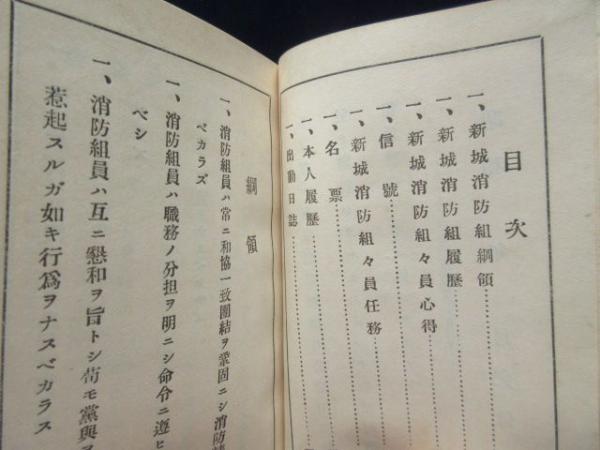 目次
一、新城消防組綱領
一、新城消防組履歴
一、新城消防組々員心得
一、信號
一、新城消防組々員任務
一、名票
一、本人履歴
一、出動日誌
綱領
一、消防組員ハ常ニ和協一致團結ヲ鞏固ニシ消防
ベカラズ
一、消防組員ハ職務ノ分担ヲ明ニシ命令ニ遵ヒ
ベシ
一、消防組員ハ互ニ懇和ヲ旨トシ苟モ黨與ヲ
惹起スルガ如キ行爲ヲナスベカラス